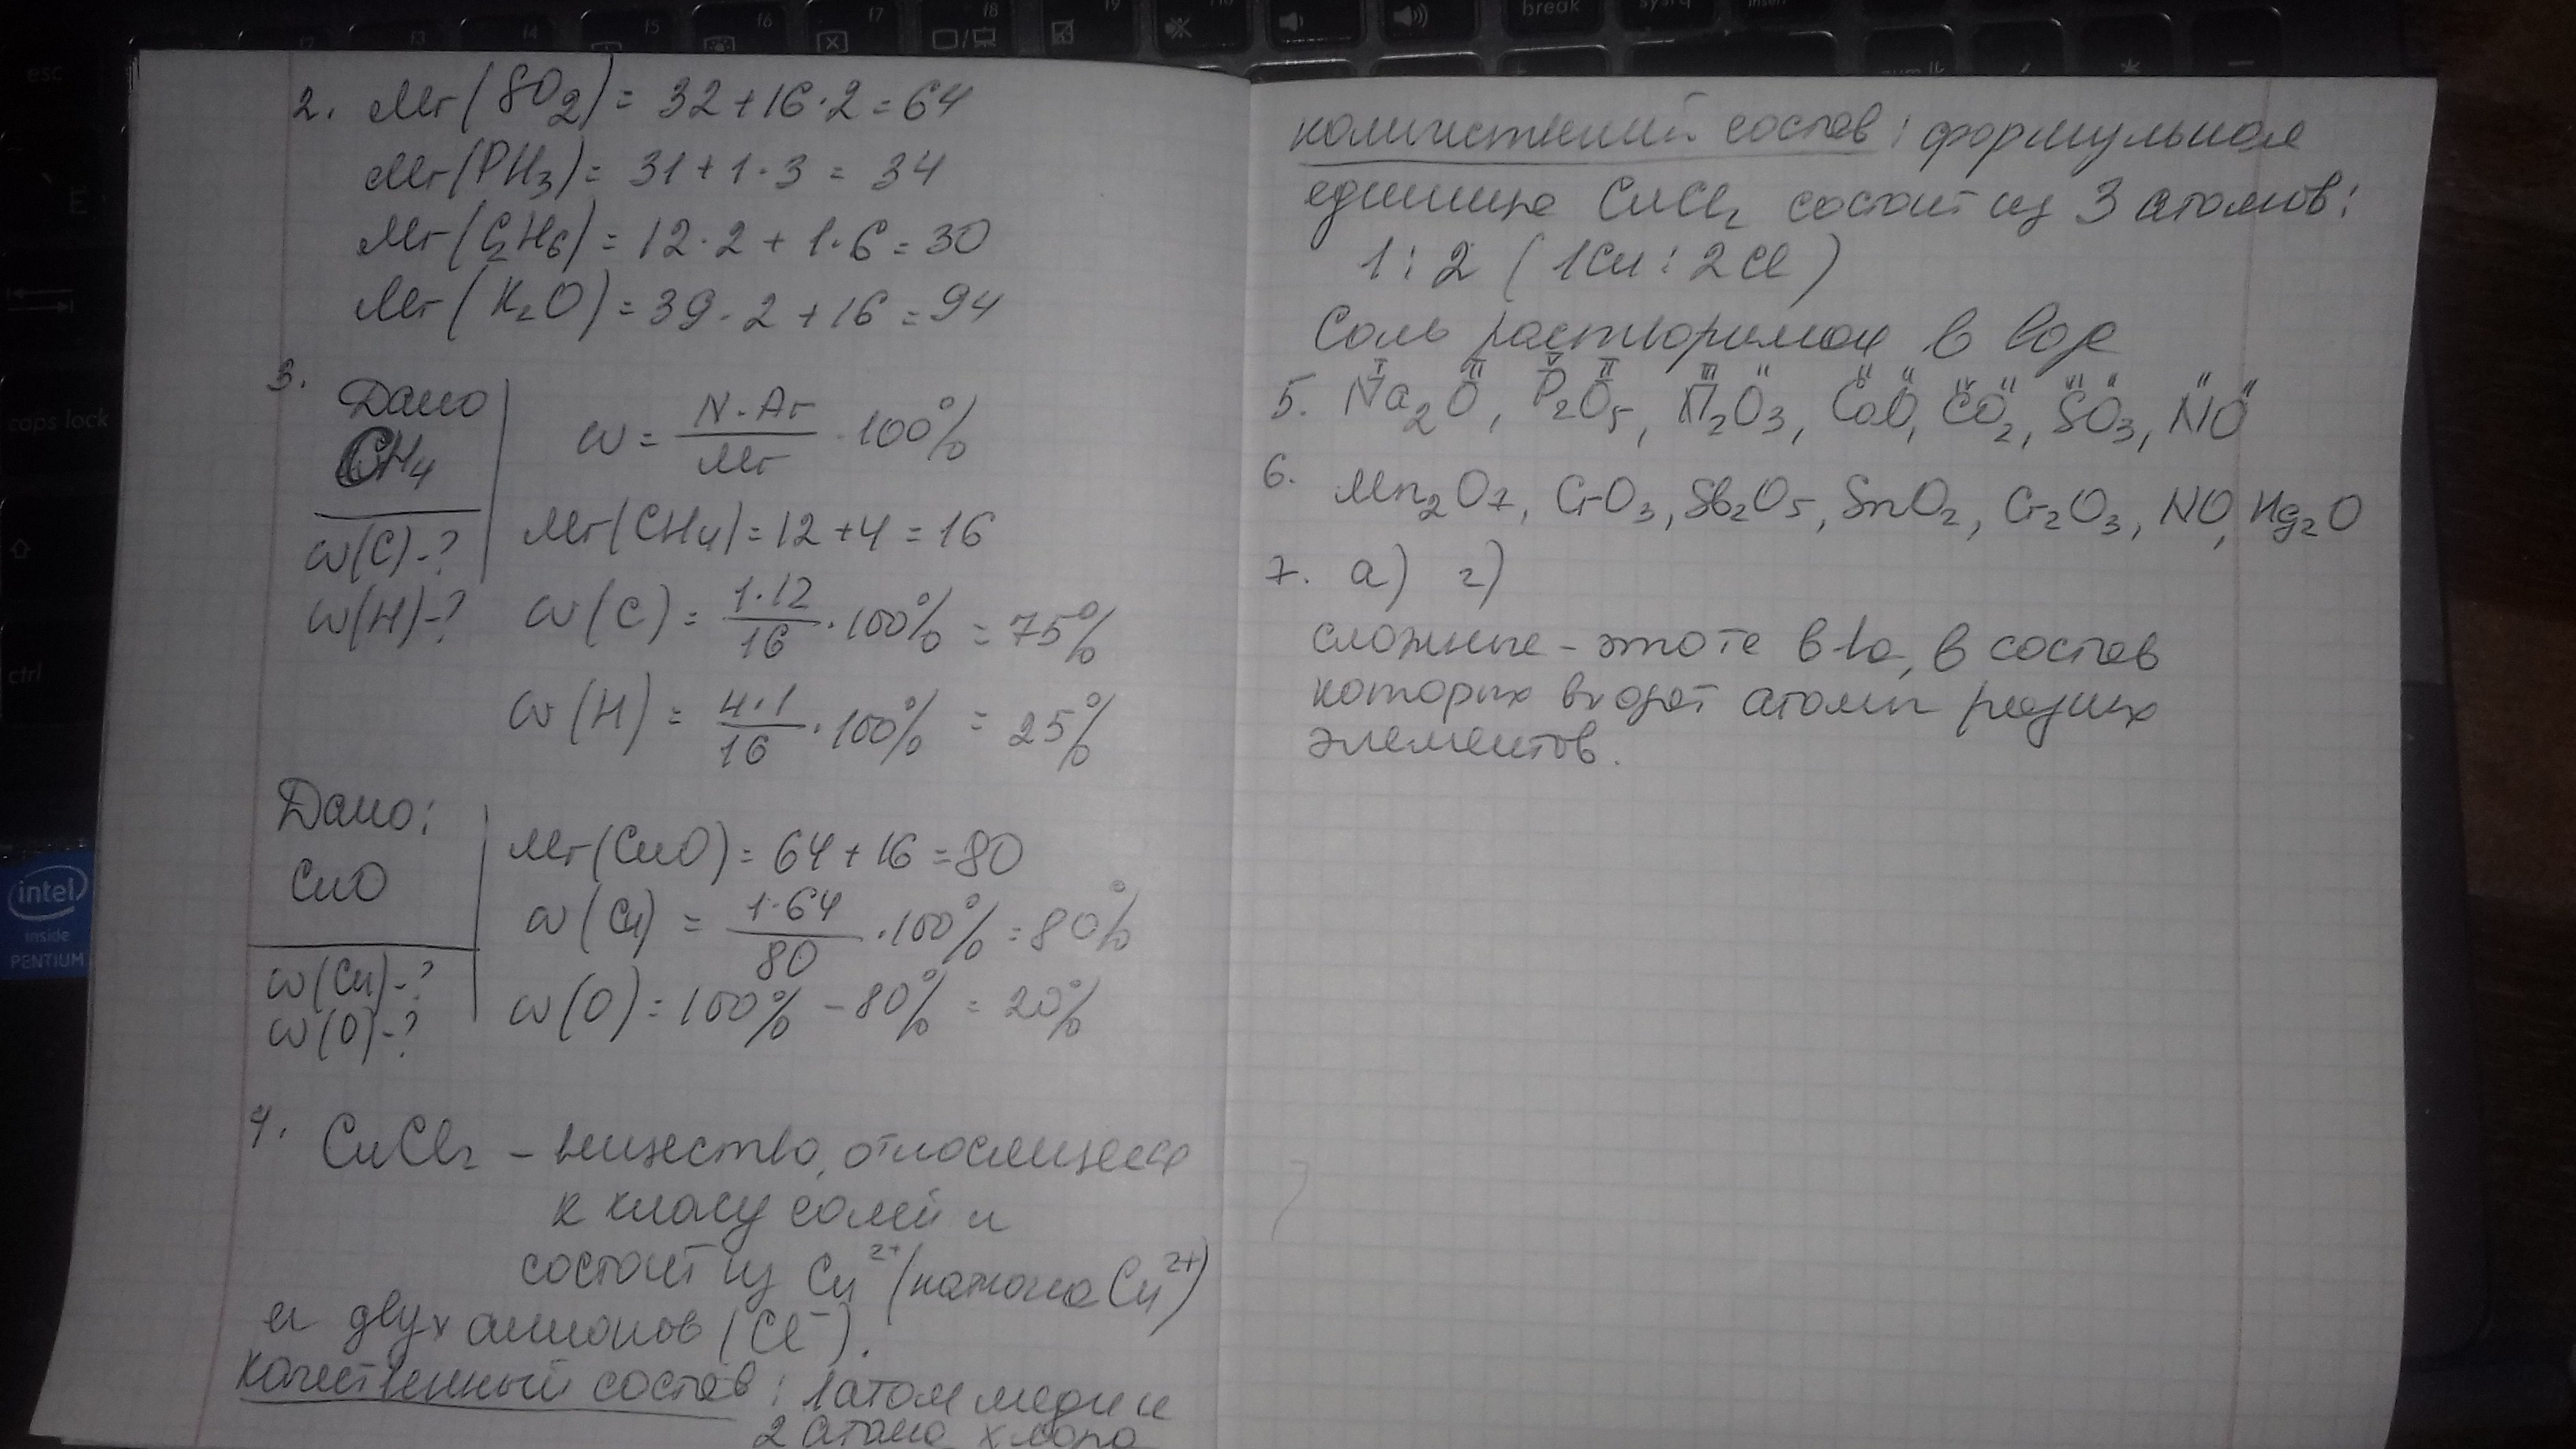 2. Mr(SO2) = 32 + 16·2 = 64
Mr(PH3) = 31 + 1·3 = 34
Mr(C2H6) = 12·2 + 1·6 = 30
Mr(K2O) = 39·2 + 16 = 94
3.
Дано
CH4
w(C)-?
w(H)-?
w = N·Ar / Mr · 100%
Mr(CH4) = 12 + 4 = 16
w(C) = 1·12 / 16 · 100% = 75%
w(H) = 4·1 / 16 · 100% = 25%
Дано:
CuO
w(Cu)-?
w(O)-?
Mr(CuO) = 64 + 16 = 80
w(Cu) = 1·64 / 80 · 100% = 80%
w(O) = 100% - 80% = 20%
4. CuCl2 - вещество, относящееся
к класу солей и
состоит из Cu2+ (катиона Cu2+)
и двух анионов (Cl-).
качественный состав: 1 атом меди и
2 атома хлора
количественный состав: формульная
единица CuCl2 состоит из 3 атомов:
1:2 (1Cu : 2Cl)
Соль растворимая в воде
5. Na2O, P2O5, 2O3, CaO, CO2, SO3, NO
I II V II III II II II IV II VI II II II
6. Mn2O7, CrO3, Sb2O5, SnO2, Cr2O3, NO, Hg2O
7. а) г)
сложные - это те в-ва, в состав
которых входят атомы разных
элементов.
esc
f3
f4
f5
f6
f7
f8
f9
break
sysrq
caps lock
ctrl
E
intel
inside
PENTIUM